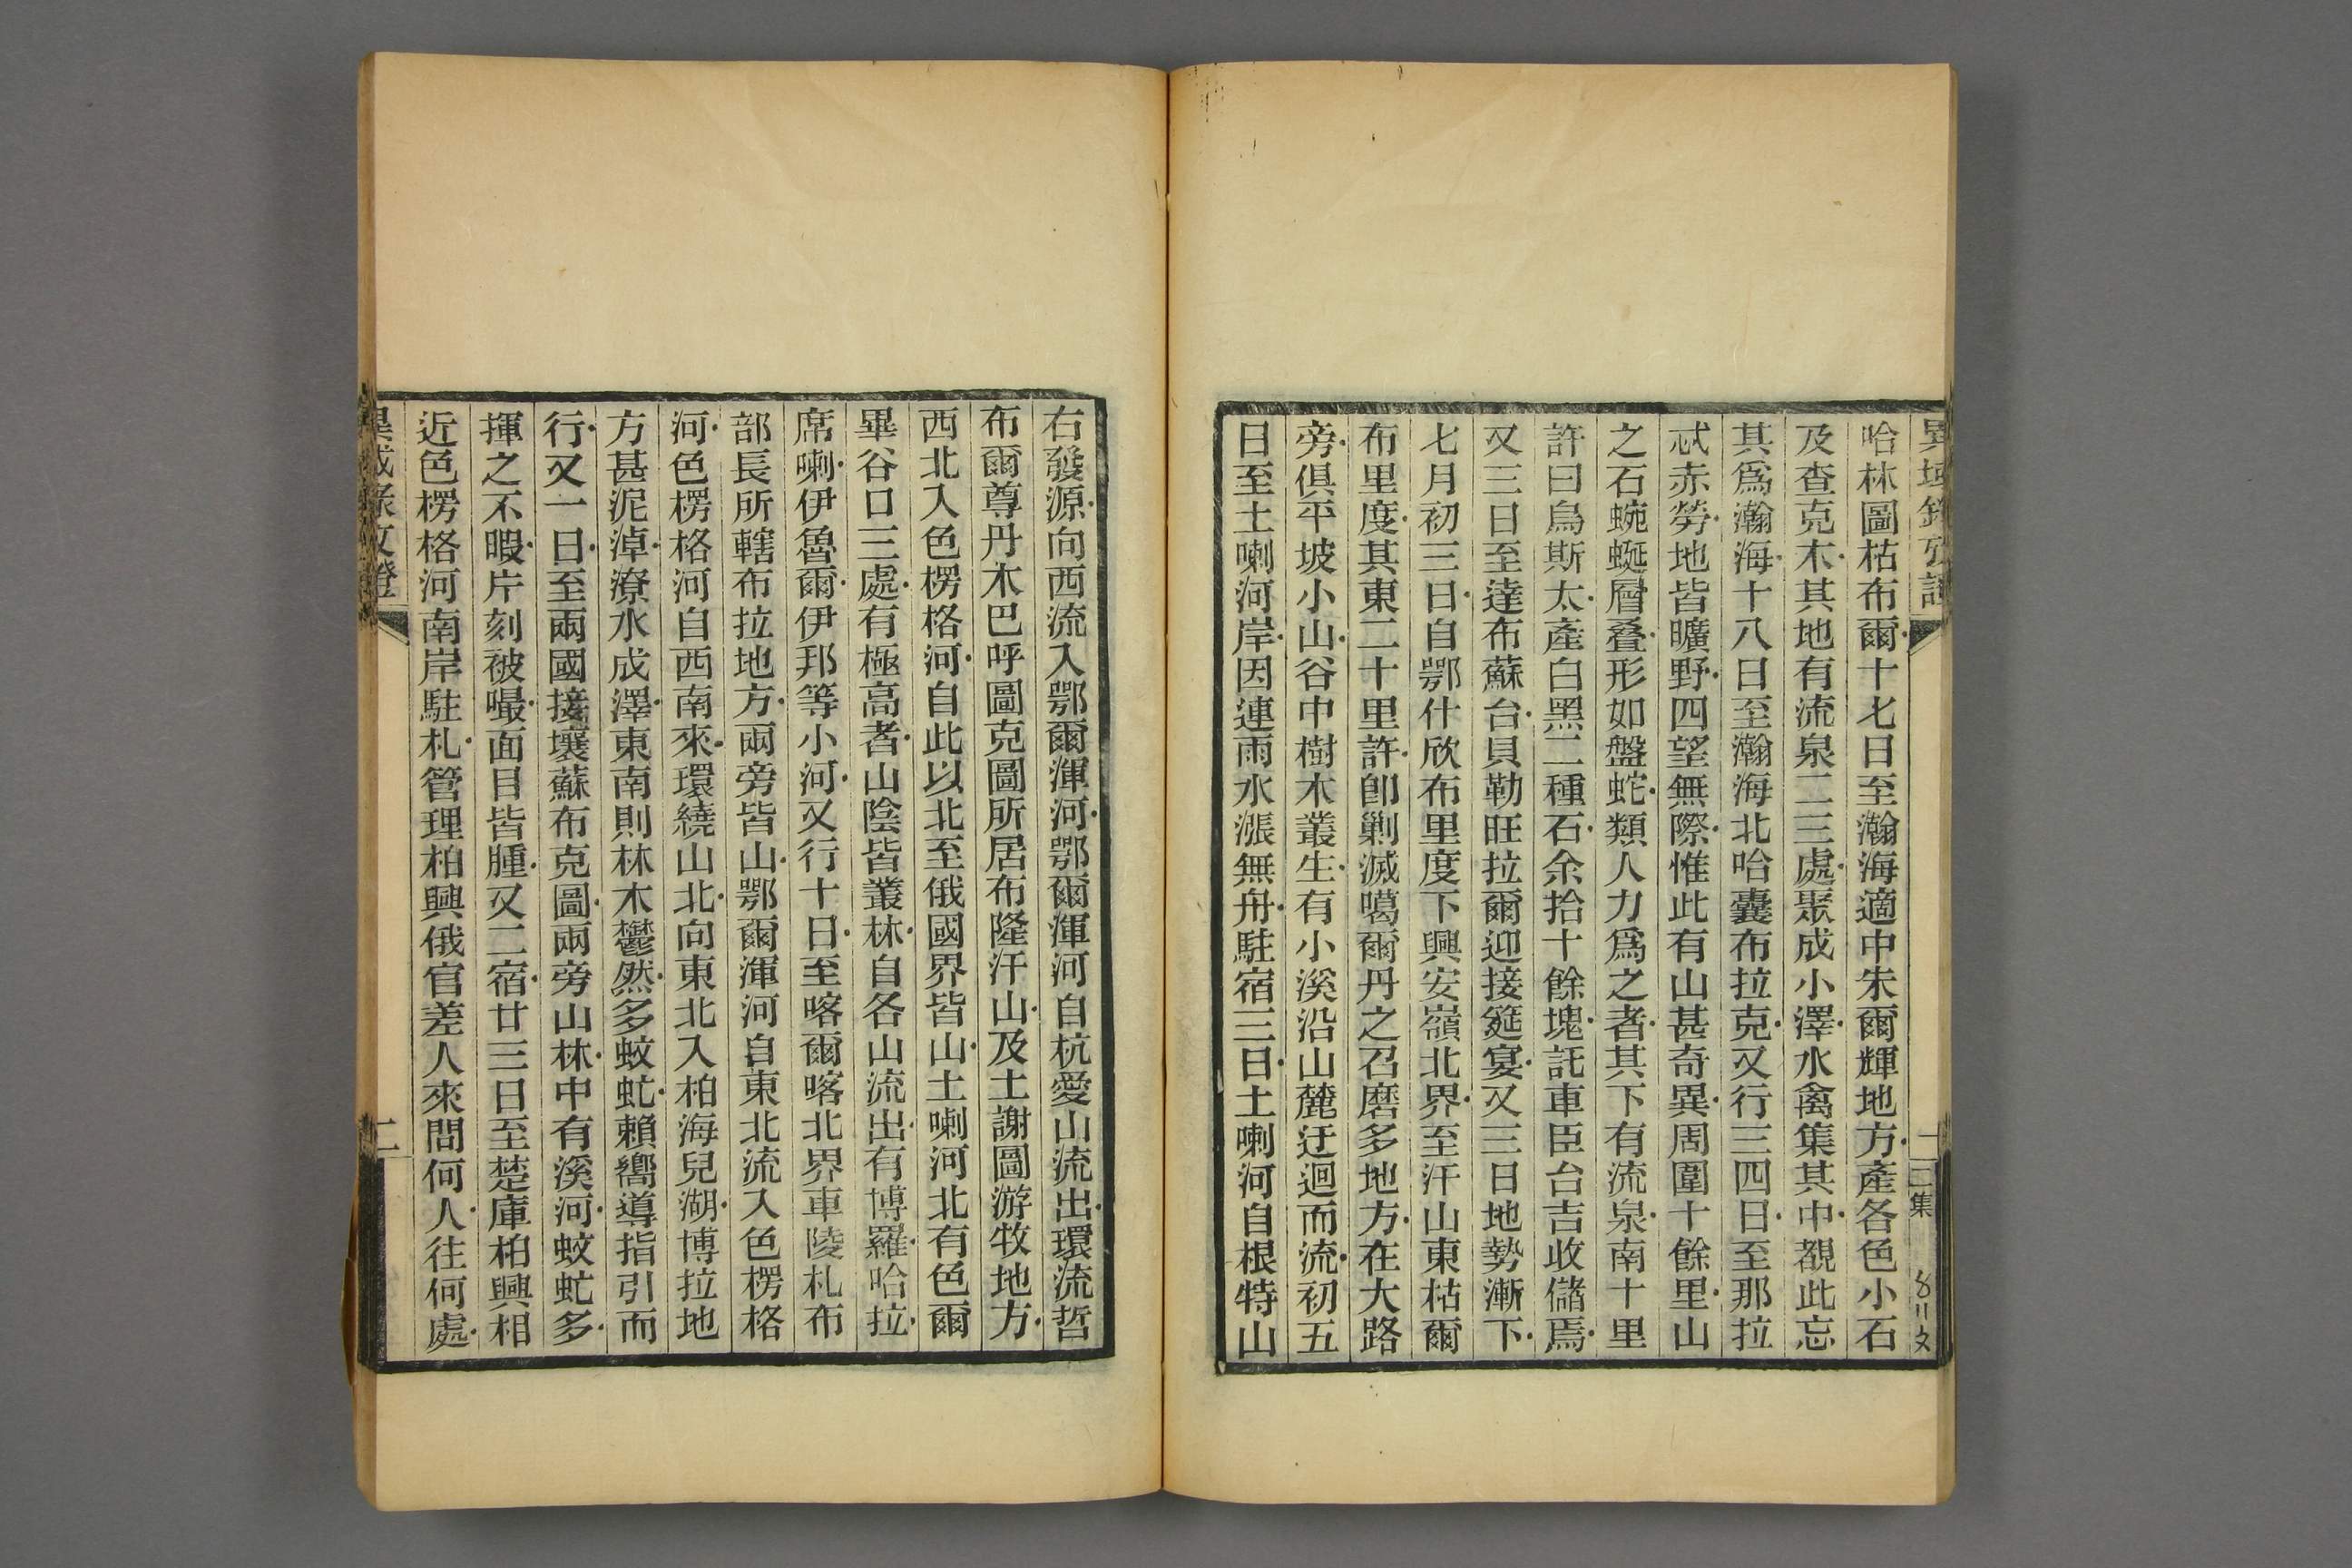 哈林圖枯布爾十七日至瀚海適中朱爾輝地方產各色小石
及查克木其地有流泉二三處聚成小澤水禽集其中覩此忘
其爲瀚海十八日至瀚海北哈囊布拉克又行三四日至那拉
忒赤勞地皆曠野四望無際惟此有山甚奇異周圍十餘里山
之石蜿蜒層叠形如盤蛇類人力爲之者其下有流泉南十里
許曰烏斯太產白黑二種石余拾十餘塊託車臣台吉收儲焉
又三日至達布蘇台貝勒旺拉爾迎接筵宴又三日地勢漸下
七月初三日自鄂什欣布里度下興安嶺北界至汗山東枯爾
布里度其東二十里許卽剿滅噶爾丹之召磨多地方在大路
旁俱平坡小山谷中樹木叢生有小溪沿山麓迂迴而流初五
日至土喇河岸因連雨水漲無舟駐宿三日土喇河自根特山
右發源向西流入鄂爾渾河鄂爾渾河自杭愛山流出環流哲
布爾尊丹木巴呼圖克圖所居布隆汗山及土謝圖游牧地方
西北入色楞格河自此以北至俄國界皆山土喇河北有色爾
畢谷口三處有極高者山陰皆叢林自各山流出有博羅哈拉
席喇伊魯爾伊邦等小河又行十日至喀爾喀北界車陵札布
部長所轄布拉地方兩旁皆山鄂爾渾河自東北流入色楞格
河色楞格河自西南來環繞山北向東北入柏海兒湖博拉地
方甚泥淖潦水成澤東南則林木鬱然多蚊虻賴嚮導指引而
行又一日至兩國接壤蘇布克圖兩旁山林中有溪河蚊虻多
揮之不暇片刻被嘬面目皆腫又二宿廿三日至楚庫柏興相
近色楞格河南岸駐札管理柏興俄官差人來問何人往何處
二